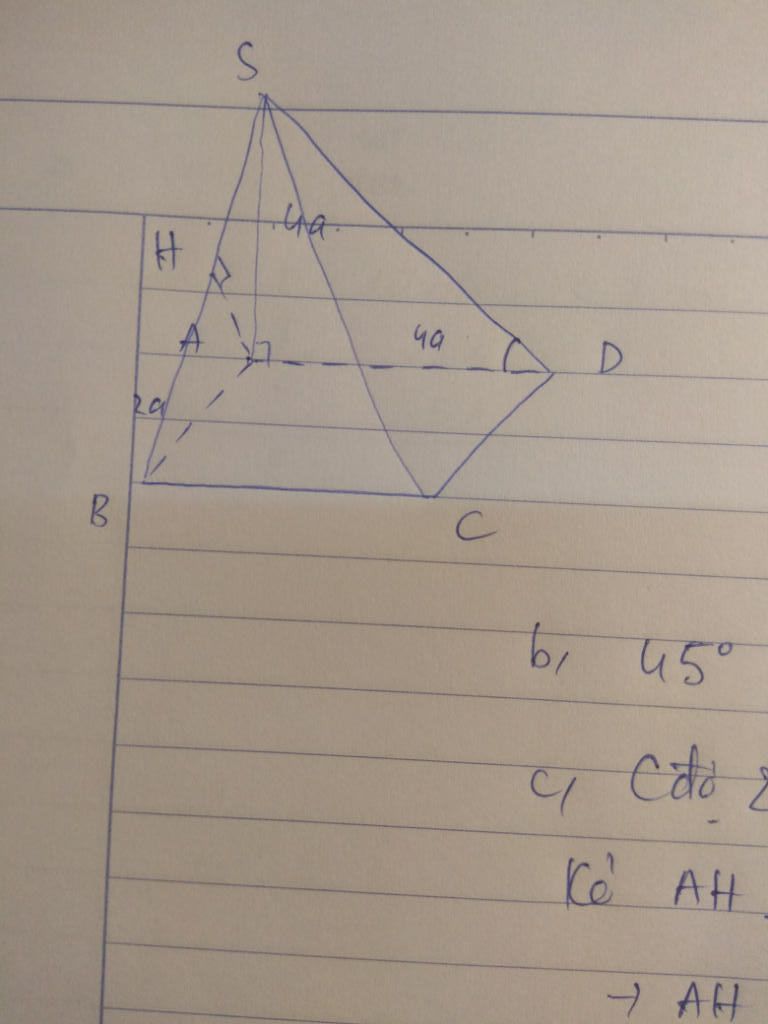 S
4a
H
A
4a
D
2a
B
C
b, 45°
c, Cđộ
Kẻ AH
→ AH